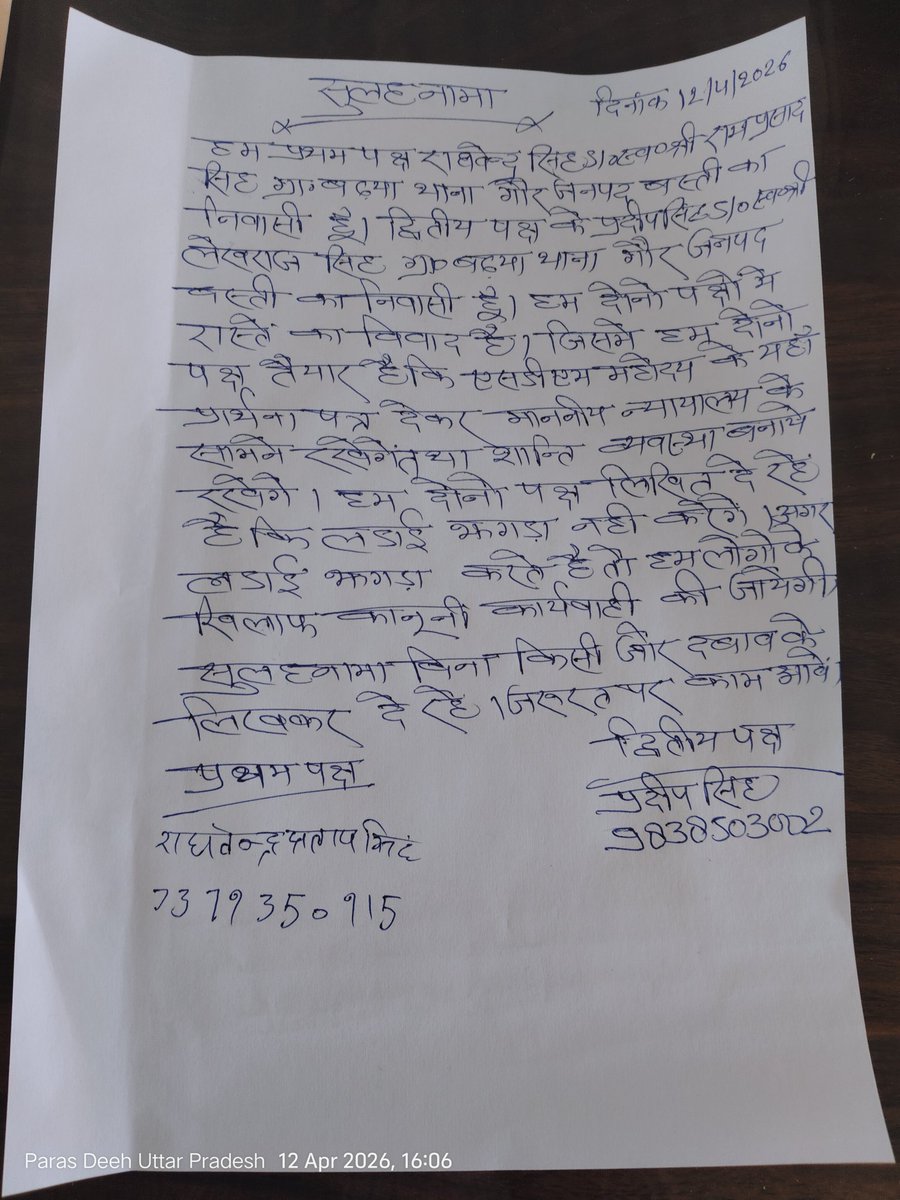 सुलहनामा
दिनांक 12/4/2026
हम प्रथम पक्ष राघवेन्द्र सिंह S/o स्व० श्री राम प्रसाद
सिंह ग्रा० बढ़या थाना गौर जनपद बस्ती का
निवासी हूँ। द्वितीय पक्ष के प्रदीप सिंह S/o स्व० श्री
लेखराज सिंह ग्राम बढ़या थाना गौर जनपद
बस्ती का निवासी हूँ। हम दोनो पक्षो मे
रास्ते का विवाद है। जिसमे हम दोनो
पक्ष तैयार है कि एसडीएम महोदय के यहाँ
प्रार्थना पत्र देकर माननीय न्यायालय के
सामने रखेगें तथा शान्ति व्यवस्था बनाये
रखेगे। हम दोनो पक्ष लिखित दे रहे
है कि लडाई झगड़ा नही करेगे। अगर
लडाई झगड़ा करते है तो हम लोगो के
खिलाफ कानूनी कार्यवाही की जायेगी।
सुलहनामा बिना किसी जोर दबाव के
लिखकर दे रहे। जरूरत पर काम आवे।
प्रथम पक्ष
द्वितीय पक्ष
प्रदीप सिंह
9838503002
राघवेन्द्र प्रताप सिंह
737935०915
Paras Deeh Uttar Pradesh 12 Apr 2026, 16:06